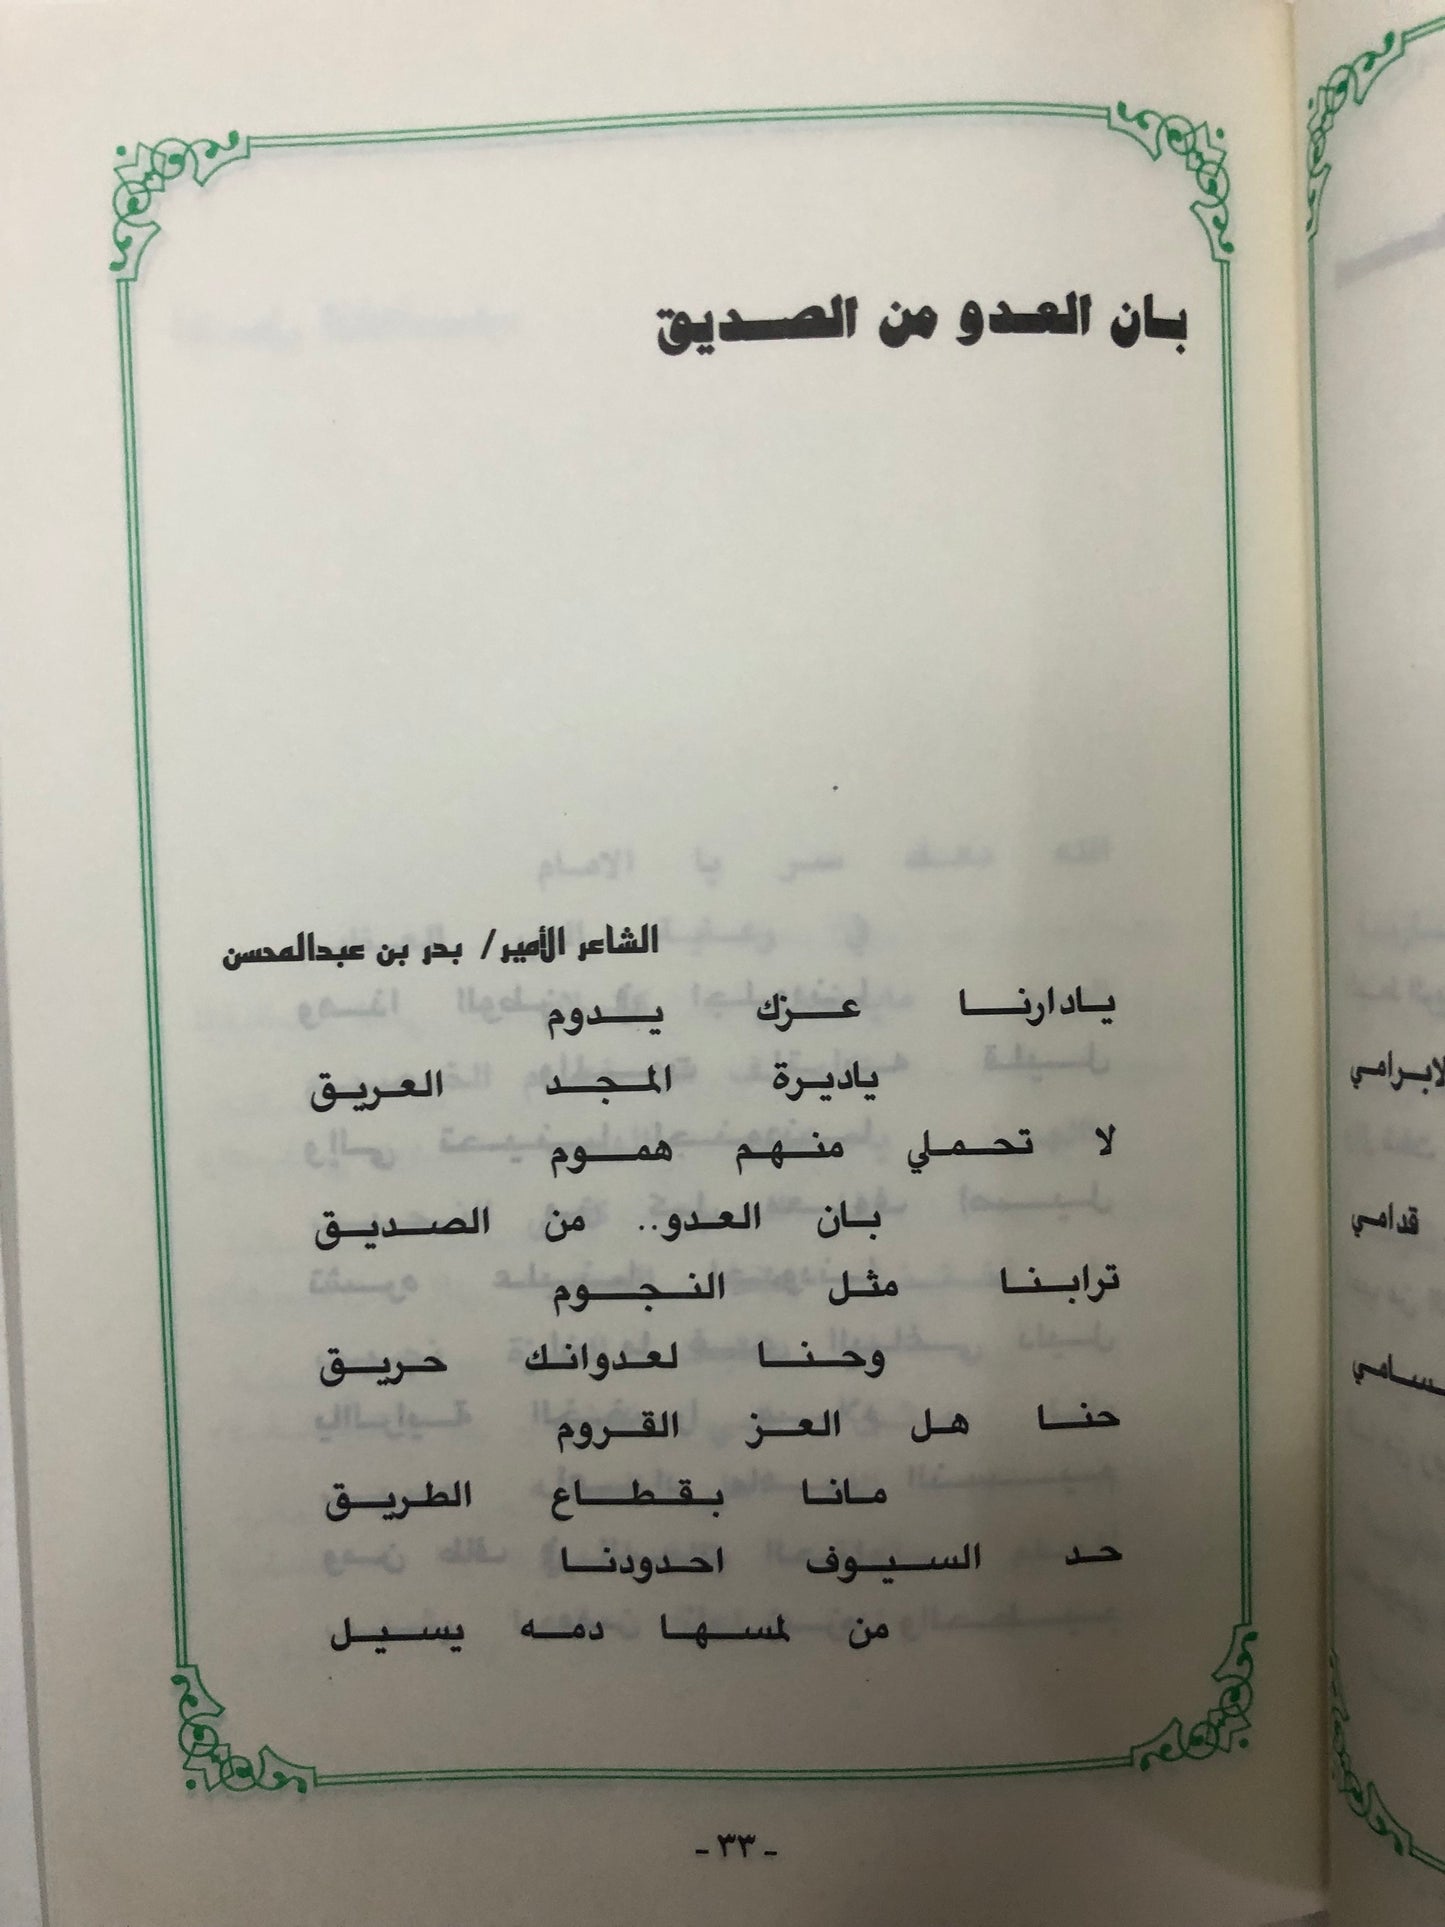 بان العدو من الصديق
الشاعر الأمير/ بدر بن عبدالمحسن
يادارنا عزك يدوم
ياديرة المجد العريق
لا تحملي منهم هموم
بان العدو.. من الصديق
ترابنا مثل النجوم
وحنا لعدوانك حريق
حنا هل العز القروم
مانا بقطاع الطريق
حد السيوف احدودنا
من لمسها دمه يسيل
- ٣٣ -
قدامي